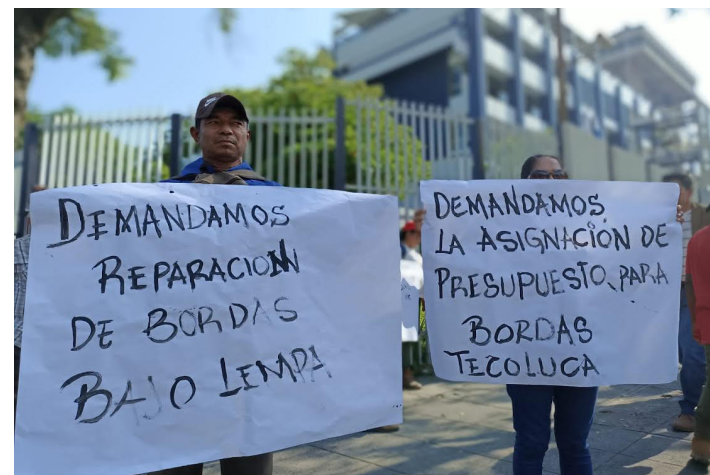 DEMANDAMOS
REPARACION
DE BORDAS
BAJO LEMPA
DEMANDAMOS
LA ASIGNACIÓN DE
PRESUPUESTO, PARA
BORDAS
TECOLUCA